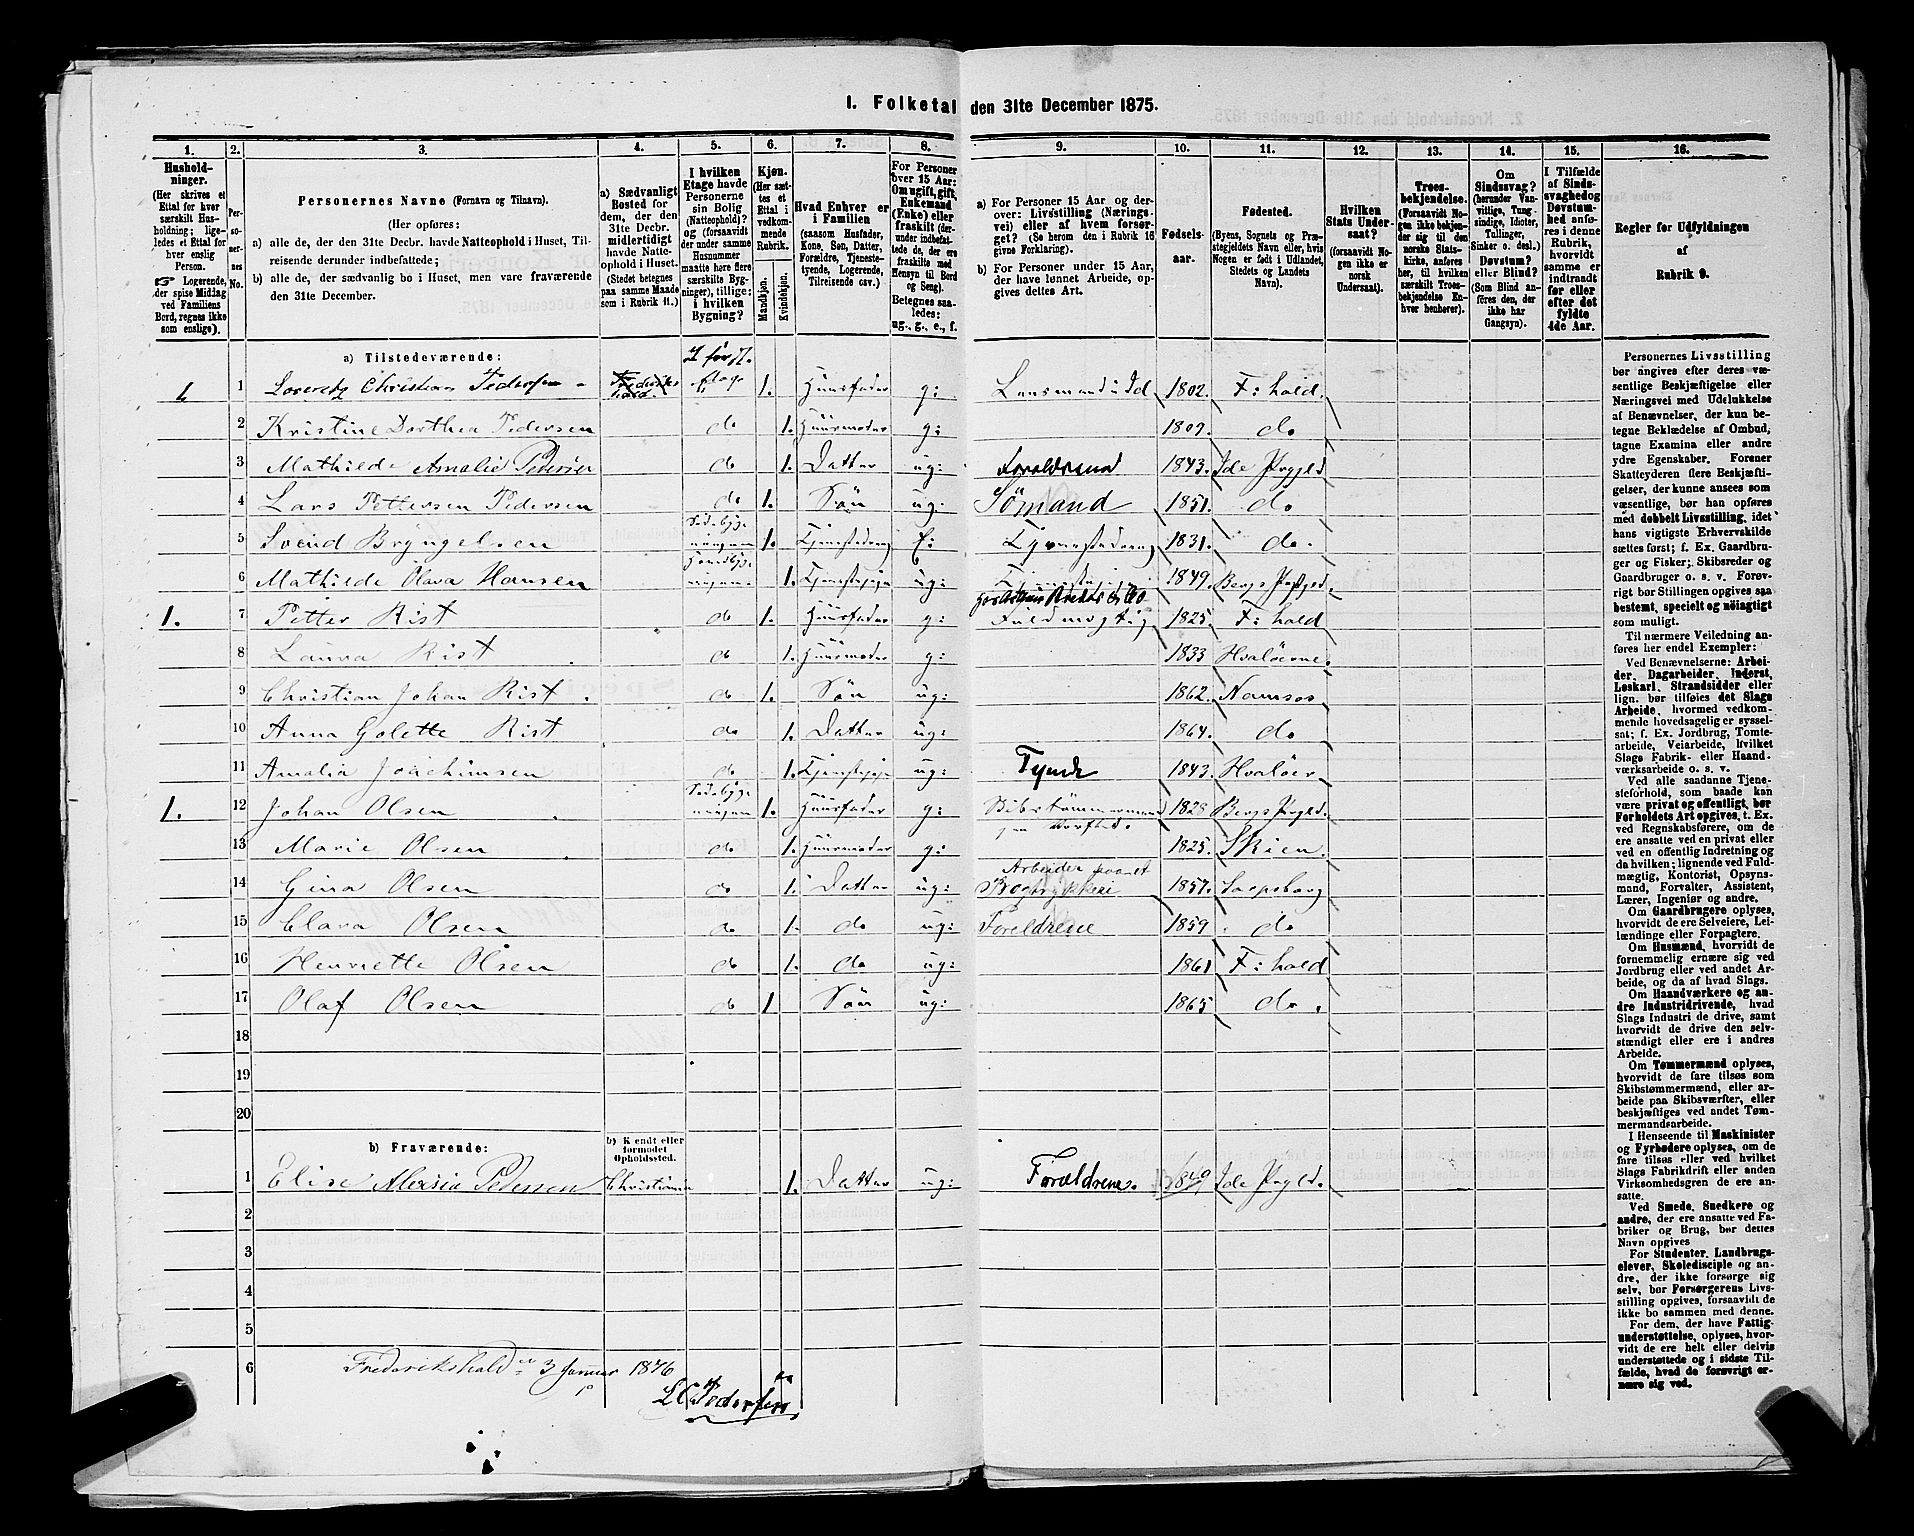 1. Folketal den 31te December 1875.
1. 2. 3. 4. 5. 6. 7. 8. 9. 10. 11. 12. 13. 14. 15. 16.
Husholdninger. (Her skrives et Ettal for hver særskilt Husholdning; ligeledes et Ettal for hver enslig Person. ☞ Logerende, der spise Middag ved Familiens Bord, regnes ikke som enslige).
Personernes No.
Personernes Navne (Fornavn og Tilnavn).
(Her opføres:
a) alle de, der den 31te Decbr. havde Natteophold i Huset, Tilreisende derunder indbefattede;
b) alle de, der sædvanlig bo i Huset, men vare fraværende den 31te December.
a) Sædvanligt Bosted for dem, der den 31te Decbr. midlertidigt havde Natteophold i Huset. (Stedet betegnes paa samme Maade som i Rubrik 11.)
I hvilken Etage havde Personerne sin Bolig (Natteophold)? og (forsaavidt der under samme Husnummer maatte høre flere særskilte Bygninger), tillige: i hvilken Bygning?
Kjøn. (Her sættes et Ettal i vedkommende Rubrik.
Mandkjøn. Kvindekjøn.
Hvad Enhver er i Familien (saasom Husfader, Kone, Søn, Datter, Forældre, Tjenestetyende, Logerende, Tilreisende osv.)
For Personer over 15 Aar: Om ugift, gift, Enkemand (Enke) eller fraskilt (derunder indbefattede de, der ere fraskilte med Hensyn til Bord og Seng). Betegnes saaledes: ug., g., e., f.
a) For Personer 15 Aar og derover: Livsstilling (Næringsvei) eller af hvem forsørget? (Se herom den i Rubrik 16 givne Forklaring).
b) For Personer under 15 Aar, der have lønnet Arbeide, opgives dettes Art.
Fødselsaar.
Fødested. (Byens, Sognets og Præstegjeldets Navn eller, hvis Nogen er født i Udlandet, Stedets og Landets Navn).
Hvilken Stats Undersaat? (forsaavidt Nogen ikke er norsk Undersaat).
Troesbekjendelse. (Forsaavidt Nogen ikke bekjender sig til den norske Statskirke, anføres her, til hvilken særskilt Troesbekjendelse Enhver henhører).
Om Sindssvag? (herunder Vanvittige, Tungsindige, Idioter, Tullinger, Sinker o. desl.). Døvstum? eller Blind? (Som Blind anføres den, der ikke har Gangsyn).
I Tilfælde af Sindssvaghed og Døvstumhed anføres i denne Rubrik, hvorvidt samme er indtraadt før eller efter det fyldte 4de Aar.
Regler for Udfyldningen af Rubrik 9.
a) Tilstedeværende:
1 1 Loverentz Christian Pedersen Frederikshald. 1 1. Huusfader g: Lensmand i Id 1802. F: hald.
2 Kristine Dorthea Pedersen do 1. Huusmoder g: 1809. do
3 Mathilde Amalie Pedersen do 1. Datter ug: Forældrene 1843. Ide Prgjld
4 Lars Pettersen Pedersen do 1. Søn ug: Sömand 1851. do
5 Svend Bryngelsen Sidebygningen 1. 1831. do.
6 Mathilde Olava Hansen 1. ug: 1849. Bergs
1. 7 Petter Rist do 1. Huusfader g: Fuldmægtig 1825. F: hald
8 Laura Rist do 1. Huusmoder g: 1833 Hvalöerne.
9 Christian Johan Rist. do 1. Søn ug: 1862. Namsos
10 Anna Golette Rist do 1. Datter ug: 1864. do
11 Amalia Joachimsen do 1. ug: Tyende 1843. Hvalöer
1. 12 Johan Olsen Sidebygningen 1. Huusfader g: Skibstömmermand 1828 Bergs Prgld.
13 Marie Olsen do 1. Huusmoder g: 1825. Skien.
14 Gina Olsen do 1. Datter ug: Arbeider paa et Bogtrykkeri 1857. Sarpsborg
15 Clara Olsen do 1. do ug: Foreldrene 1859. do
16 Henriette Olsen do 1. do ug: 1861 F: hald
17 Olaf Olsen do 1 Søn ug: 1865 do.
18
19
20
b) Fraværende:
b) Kjendt eller formodet Opholdssted.
1 Elise Pedersen Christiania 1. Datter ug: Forældrene. 1849 Ide Prgld.
2
3
4
5
6
Frederikshald 3 Januar 1876
L C Pedersen
Personernes Livsstilling bør angives efter deres væsentlige Beskjæftigelse eller Næringsvei med Udelukkelse af Benævnelser, der kun betegne Beklædelse af Ombud, tagne Examina eller andre ydre Egenskaber. Forener Skatteyderen flere Beskjæftigelser, der kunne ansees som væsentlige, bør han opføres med dobbelt Livsstilling, idet hans vigtigste Erhvervskilde sættes først; f. Ex. Gaardbruger og Fisker; Skibsreder og Gaardbruger o. s. v. Forøvrigt bør Stillingen opgives saa bestemt, specielt og nøiagtigt som muligt.
Til nærmere Veiledning anføres her endel Exempler:
Ved Benævnelserne: Arbeider, Dagarbeider, Inderst, Løskarl, Strandsidder eller lign. bør tilføies det Slags Arbeide, hvormed vedkommende hovedsagelig er sysselsat; f. Ex. Jordbrug, Tomtearbeide, Veiarbeide, hvilket Slags Fabrik- eller Haandværksarbeide o. s. v.
Ved alle saadanne Tjenesteforhold, som baade kan være privat og offentligt, bør Forholdets Art opgives, t. Ex. ved Regnskabsførere, om de ere ansatte ved en privat eller ved en offentlig Indretning og da hvilken; lignende ved Fuldmægtig, Kontorist, Opsynsmand, Forvalter, Assistent, Lærer, Ingeniør og andre.
Om Gaardbrugere oplyses, hvorvidt de ere Selveiere, Leilændinge eller Forpagtere.
Om Husmænd, hvorvidt de fornemmelig ernære sig ved Jordbrug eller ved andet Arbeide, og da af hvad Slags.
Om Haandværkere og andre Industridrivende, hvad Slags Industri de drive, samt hvorvidt de drive den selvstændigt eller ere i andres Arbeide.
Om Tømmermænd oplyses, hvorvidt de fare tilsøs som Skibstømmermænd, eller arbeide paa Skibsværfter, eller beskjæftiges ved andet Tømmermandsarbeide.
I Henseende til Maskinister og Fyrbødere oplyses, om de fare tilsøs eller ved hvilket Slags Fabrikdrift eller anden Virksomhedsgren de ere ansatte.
Ved Smede, Snedkere og andre, der ere ansatte ved Fabriker og Brug, bør dettes Navn opgives
For Studenter, Landbrugselever, Skoledisciple og andre, der ikke forsørge sig selv, bør Forsørgerens Livsstilling opgives, forsaavidt de ikke bo sammen med denne.
For dem, der have Fattigunderstøttelse, oplyses, hvorvidt de ere helt eller delvis understøttede og i sidste Tilfælde, hvad de forøvrigt ernære sig ved.